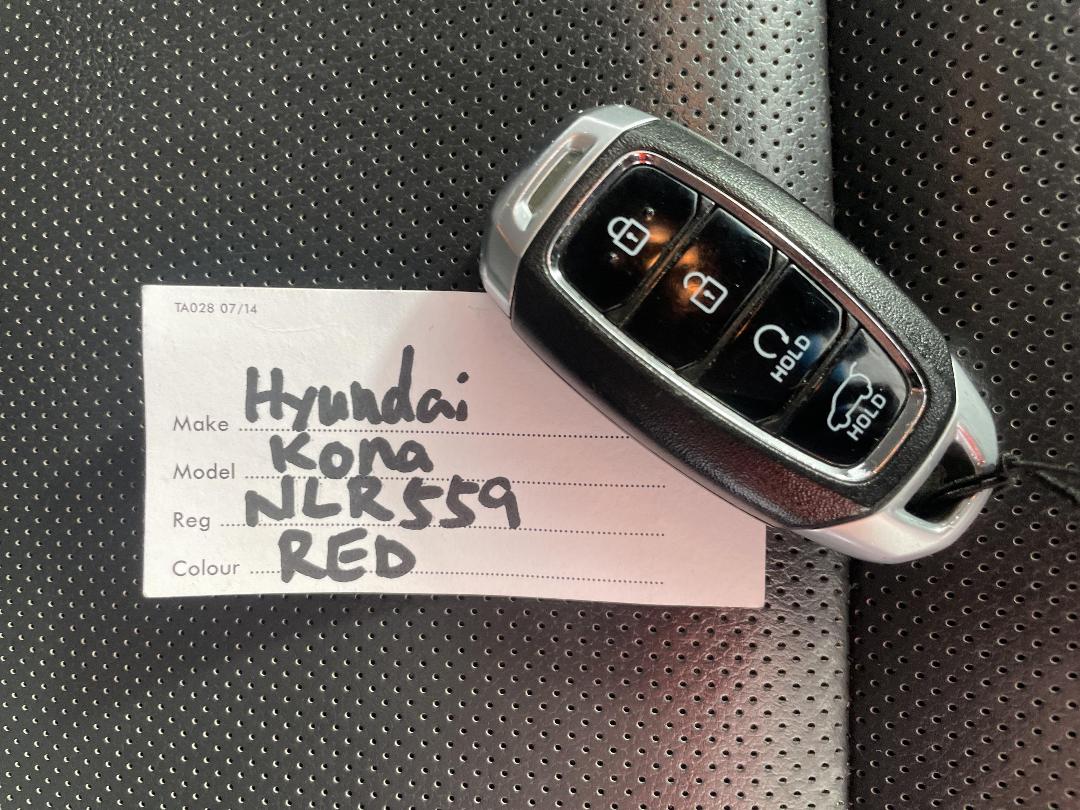 TA028 07/14
Make Hyundai
Model Kona
Reg NLR559
Colour RED
HOLD
HOLD